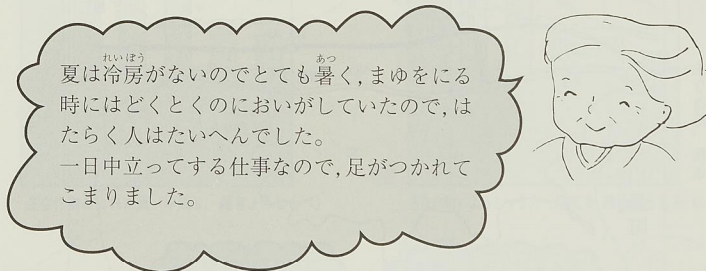 夏は冷房がないのでとても暑く,まゆをにる
時にはどくとくのにおいがしていたので,は
たらく人はたいへんでした。
一日中立ってする仕事なので,足がつかれて
こまりました。